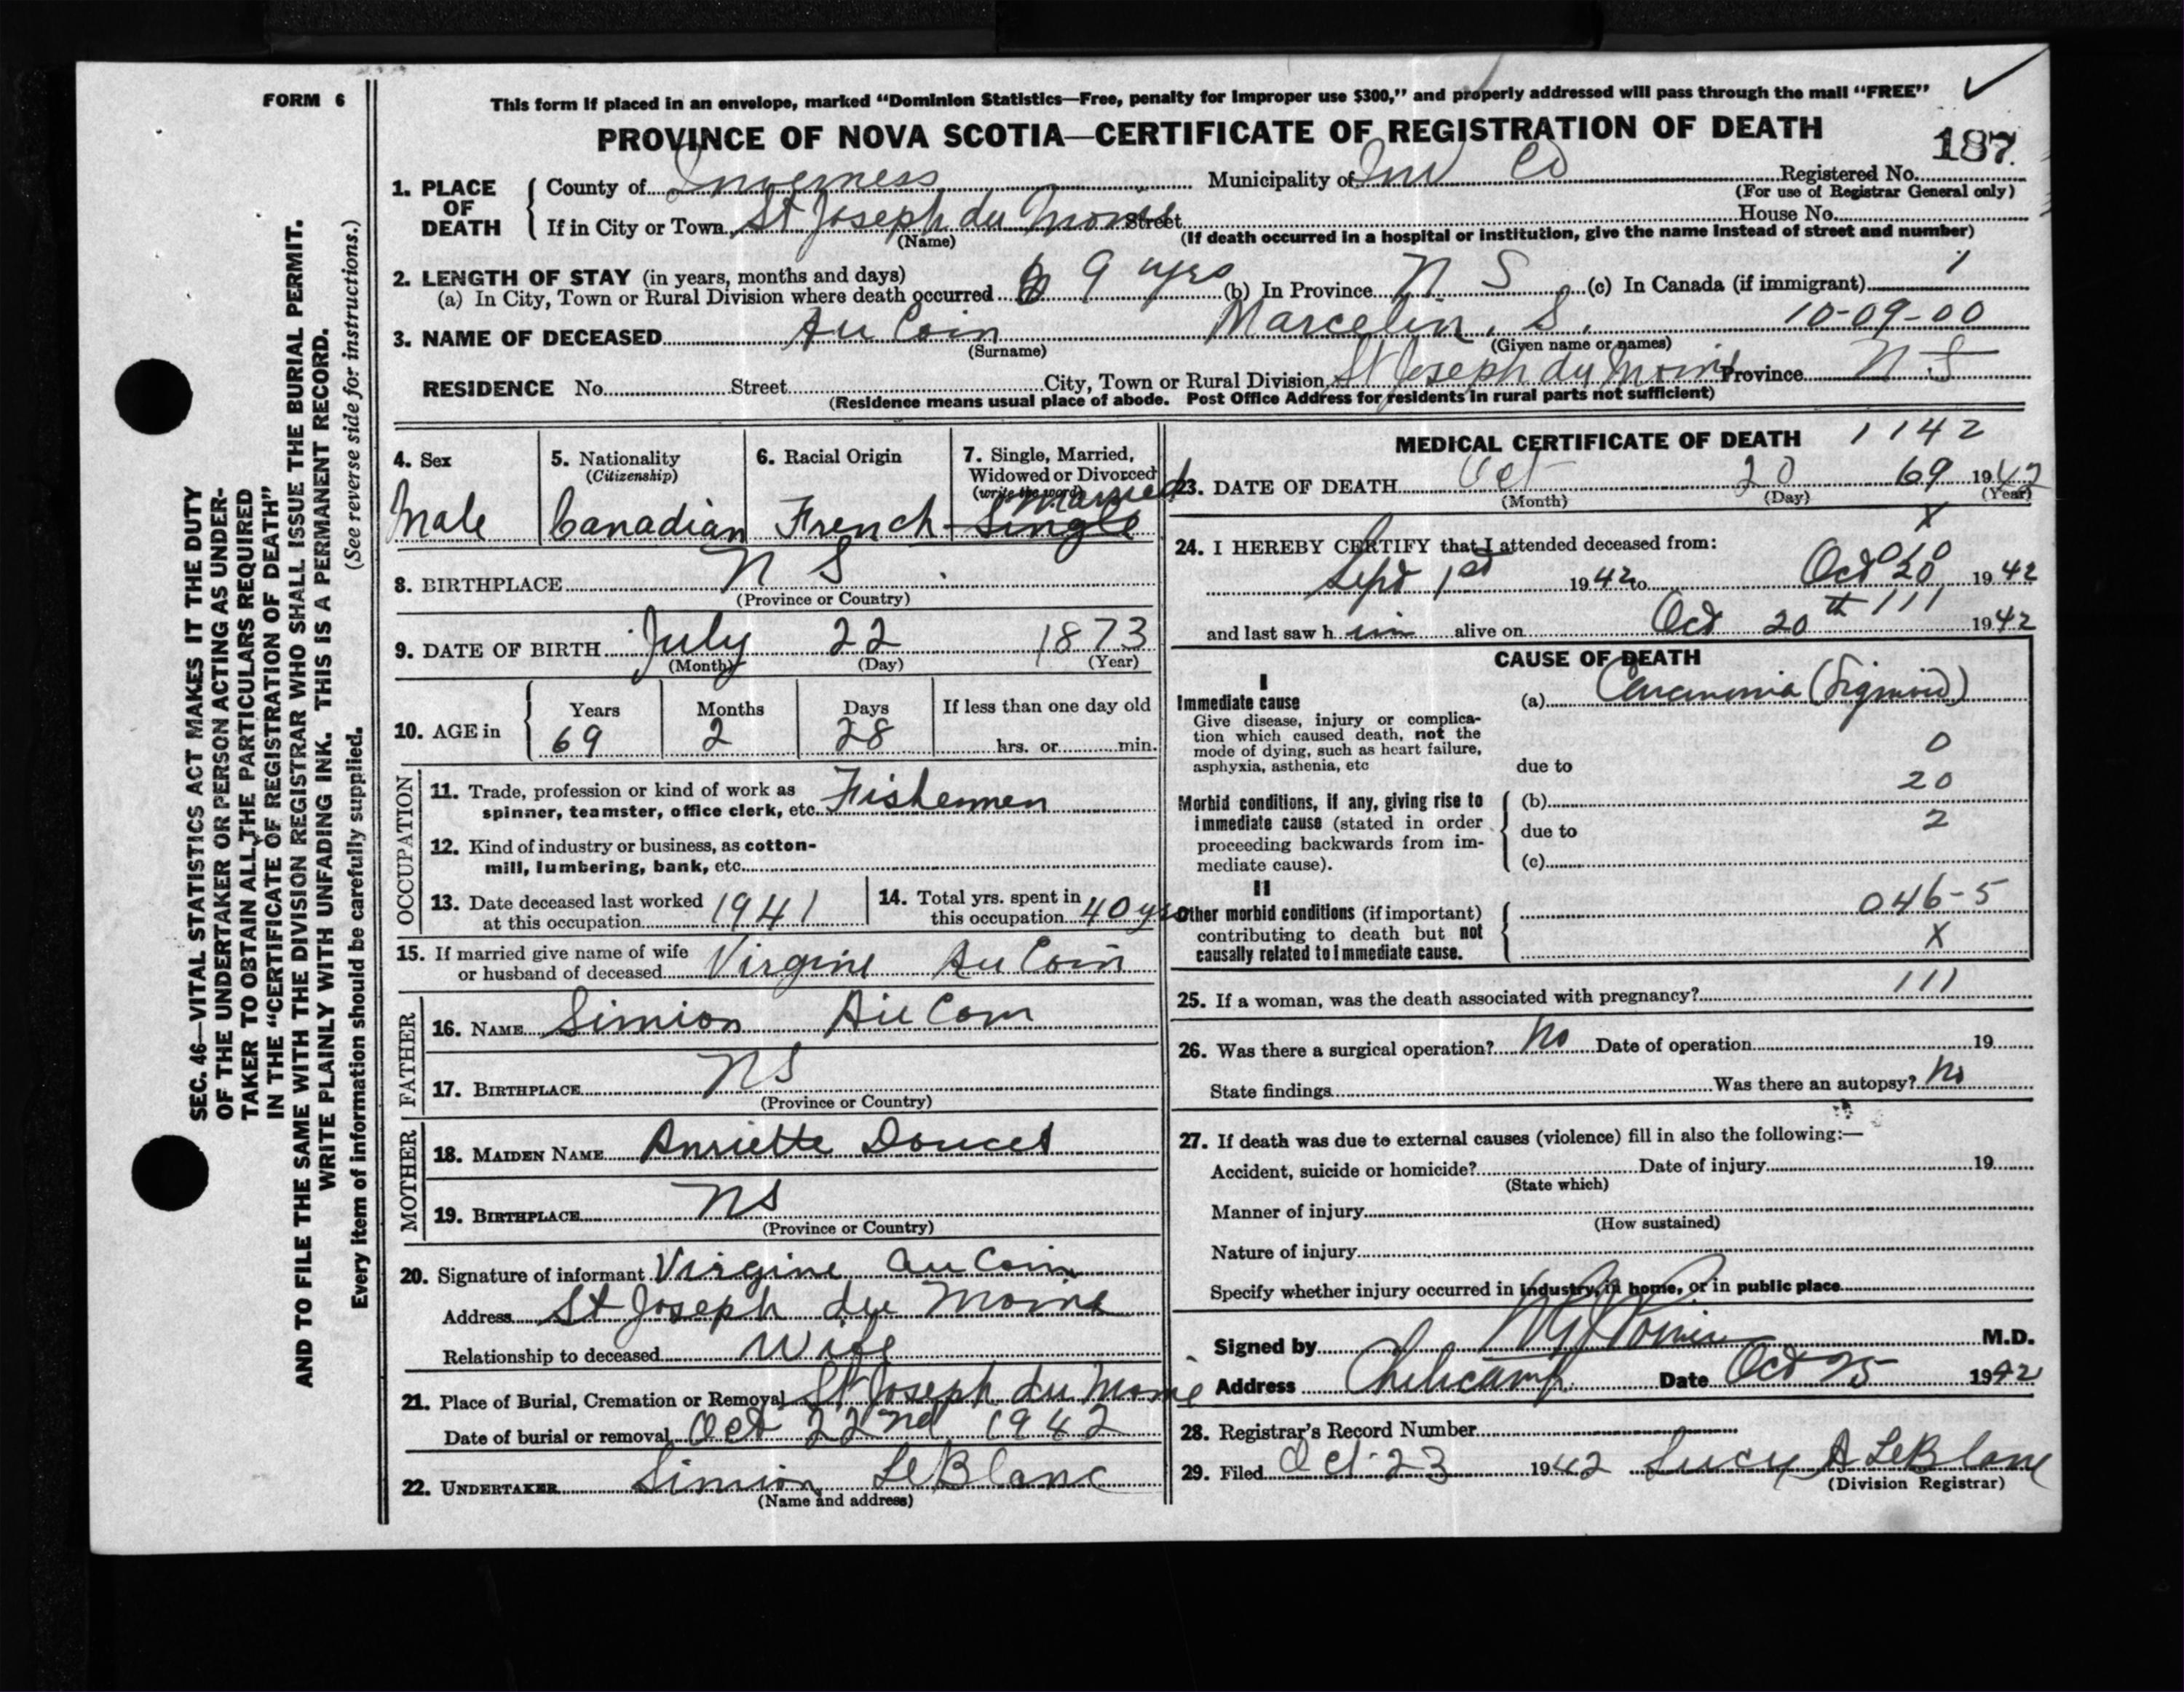 FORM 6
This form if placed in an envelope, marked “Dominion Statistics—Free, penalty for improper use $300,” and properly addressed will pass through the mail “FREE”
PROVINCE OF NOVA SCOTIA—CERTIFICATE OF REGISTRATION OF DEATH
187
1. PLACE OF DEATH
County of Inverness Municipality of Inv Co Registered No.
(For use of Registrar General only)
If in City or Town St Joseph du Moine Street House No.
(Name) (If death occurred in a hospital or institution, give the name instead of street and number)
2. LENGTH OF STAY (in years, months and days)
(a) In City, Town or Rural Division where death occurred 69 yrs (b) In Province N S (c) In Canada (if immigrant) 1
3. NAME OF DECEASED Au Coin Marcelin. S. 10-09-00
(Surname) (Given name or names)
RESIDENCE No. Street City, Town or Rural Division St Joseph du Moine Province N S
(Residence means usual place of abode. Post Office Address for residents in rural parts not sufficient)
4. Sex
Male
5. Nationality
(Citizenship)
Canadian
6. Racial Origin
French
7. Single, Married, Widowed or Divorced
(write the word)
Married
Single
8. BIRTHPLACE N S
(Province or Country)
9. DATE OF BIRTH July 22 1873
(Month) (Day) (Year)
10. AGE in
Years Months Days If less than one day old
69 2 28 hrs. or min.
OCCUPATION
11. Trade, profession or kind of work as
spinner, teamster, office clerk, etc. Fishermen
12. Kind of industry or business, as cotton-
mill, lumbering, bank, etc.
13. Date deceased last worked
at this occupation 1941
14. Total yrs. spent in
this occupation 40 yrs
15. If married give name of wife
or husband of deceased Virgine Au Coin
FATHER
16. NAME Simion Au Coin
17. BIRTHPLACE NS
(Province or Country)
MOTHER
18. MAIDEN NAME Anriette Doucet
19. BIRTHPLACE NS
(Province or Country)
20. Signature of informant Virgine Au Coin
Address St Joseph du Moine
Relationship to deceased Wife
21. Place of Burial, Cremation or Removal St Joseph du Moine
Date of burial or removal Oct 22nd 1942
22. UNDERTAKER Simion LeBlanc
(Name and address)
MEDICAL CERTIFICATE OF DEATH 1142
23. DATE OF DEATH Oct 20 69 1942
(Month) (Day) (Year)
X
24. I HEREBY CERTIFY that I attended deceased from:
010
Sept 1st 1942 to Oct 20 1942
111
and last saw h im alive on Oct 20th 1942
CAUSE OF DEATH
I
Immediate cause
Give disease, injury or complica-
tion which caused death, not the
mode of dying, such as heart failure,
asphyxia, asthenia, etc
(a) Carcinoma (Sigmoid)
0
due to
20
Morbid conditions, if any, giving rise to
immediate cause (stated in order
proceeding backwards from im-
mediate cause).
(b)
due to 2
(c)
II
Other morbid conditions (if important)
contributing to death but not
causally related to immediate cause.
046-5
X
111
25. If a woman, was the death associated with pregnancy?
26. Was there a surgical operation? No Date of operation 19
State findings Was there an autopsy? No
27. If death was due to external causes (violence) fill in also the following:—
Accident, suicide or homicide? Date of injury 19
(State which)
Manner of injury
(How sustained)
Nature of injury
Specify whether injury occurred in industry, in home, or in public place
Signed by M.D.
Address Cheticamp Date Oct 25 1942
28. Registrar's Record Number
29. Filed Oct. 23 1942 Lucy A LeBlanc
(Division Registrar)
SEC. 46—VITAL STATISTICS ACT MAKES IT THE DUTY
OF THE UNDERTAKER OR PERSON ACTING AS UNDER-
TAKER TO OBTAIN ALL THE PARTICULARS REQUIRED
IN THE “CERTIFICATE OF REGISTRATION OF DEATH”
AND TO FILE THE SAME WITH THE DIVISION REGISTRAR WHO SHALL ISSUE THE BURIAL PERMIT.
WRITE PLAINLY WITH UNFADING INK. THIS IS A PERMANENT RECORD.
Every item of information should be carefully supplied. (See reverse side for instructions.)